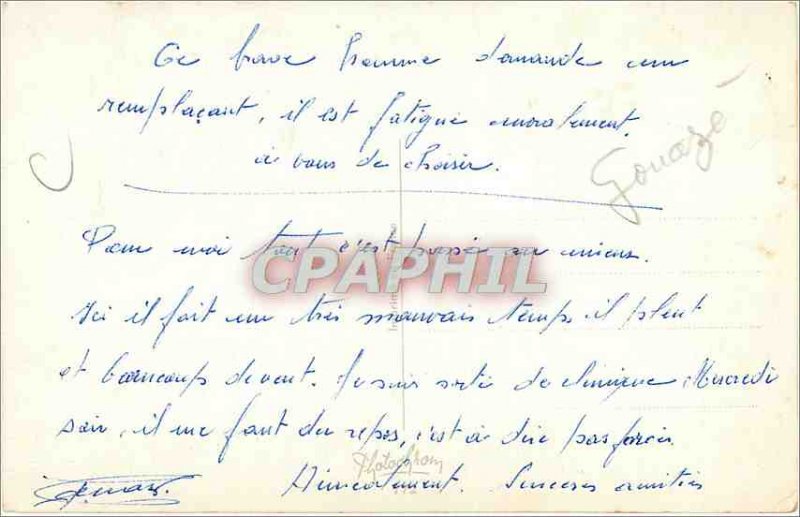 Ce brave homme demande un
remplaçant, il est fatigué moralement.
à vous de choisir.
Gouazé
Pour moi tout c'est passé au mieux.
CPAPHIL
Ici il fait un très mauvais temps il pleut
et beaucoup de vent. Je suis sorti de clinique Mercredi
soir, il me faut du repos, c'est à dire pas forcer
Photochrom
Amicalement. Sincères amitiés